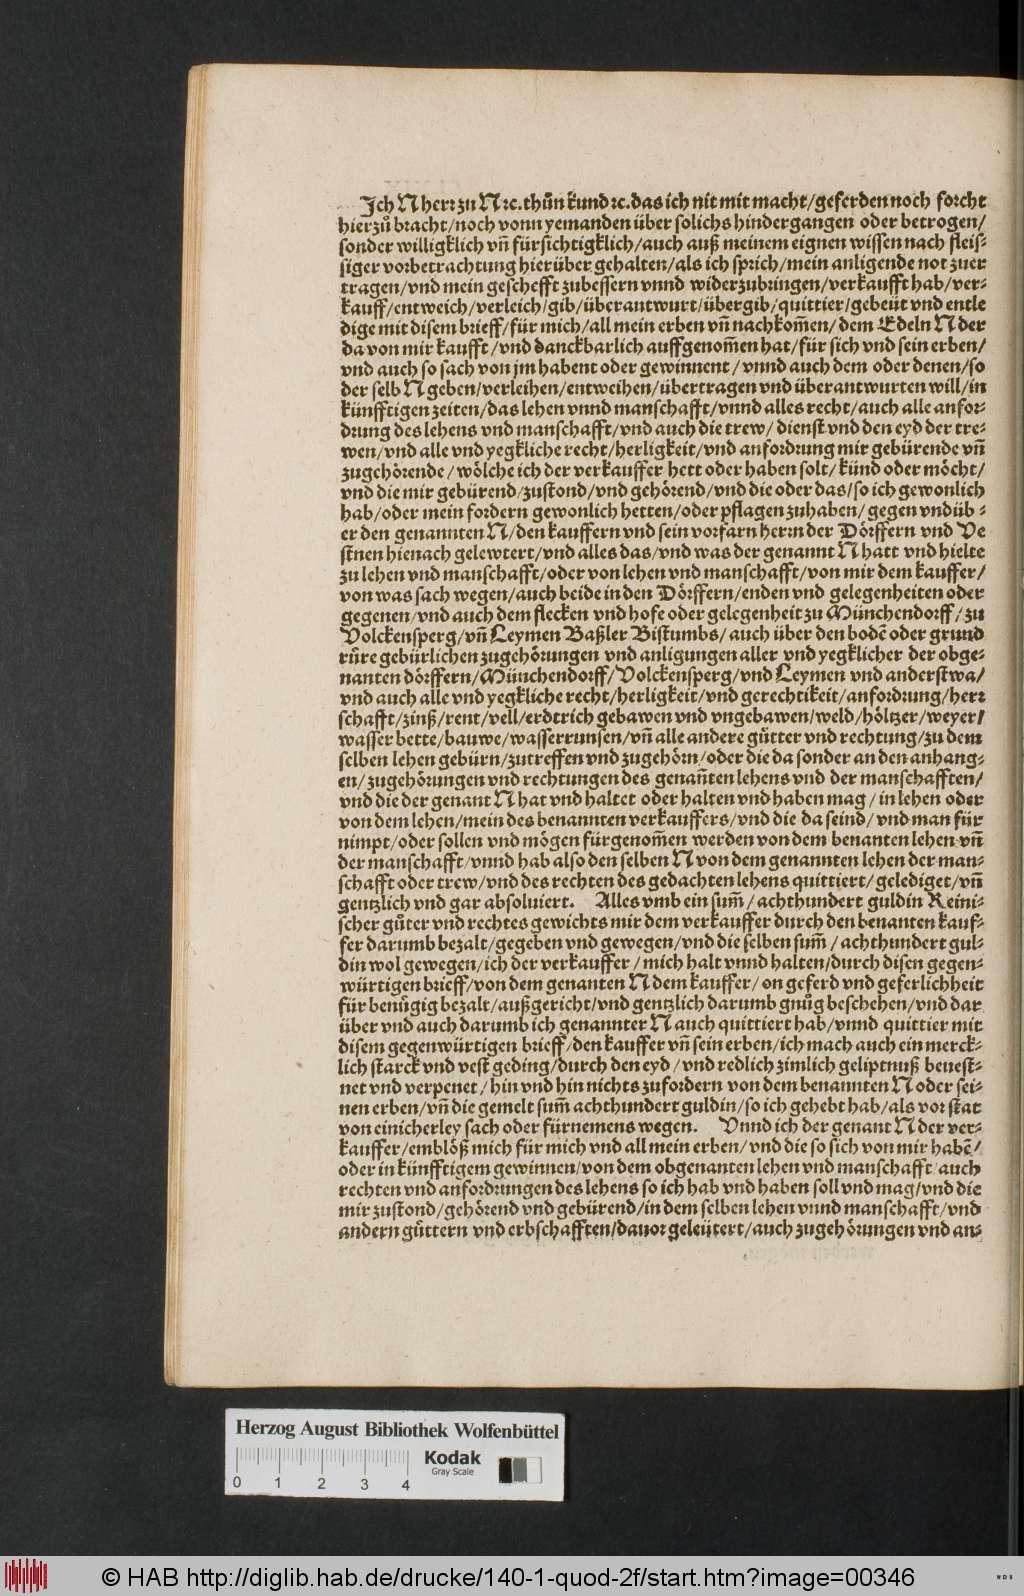 Ich N herr zu N ꝛc. thůn kund ꝛc. das ich nit mit macht/geferden noch forcht
hierzů bracht/noch vonn yemanden über solichs hindergangen oder betrogen/
sonder willigklich vñ fürsichtigklich/auch auß meinem eignen wissen nach fleis⸗
siger vorbetrachtung hierüber gehalten/als ich sprich/mein anligende not zuer
tragen/vnd mein geschefft zubessern vnnd widerzubringen/verkaufft hab/ver⸗
kauff/entweich/verleich/gib/überantwurt/übergib/quittier/gebeüt vnd entle
dige mit disem brieff/für mich/all mein erben vñ nachkom̃en/dem Edeln N der
da von mir kaufft/vnd danckbarlich auffgenom̃en hat/für sich vnd sein erben/
vnd auch so sach von jm habent oder gewinnent/vnnd auch dem oder denen/so
der selb N geben/verleihen/entweihen/übertragen vnd überantwurten will/in
künfftigen zeiten/das lehen vnnd manschafft/vnnd alles recht/auch alle anfor⸗
drung des lehens vnd manschafft/vnd auch die trew/dienst vnd den eyd der tre⸗
wen/vnd alle vnd yegkliche recht/herligkeit/vnd anfordrung mir gebürende vñ
zugehörende/wölche ich der verkauffer hett oder haben solt/künd oder möcht/
vnd die mir gebürend/zustond/vnd gehörend/vnd die oder das/so ich gewonlich
hab/oder mein fordern gewonlich hetten/oder pflagen zuhaben/gegen vnd üb⸗
er den genannten N/den kauffern vnd sein vorfarn herrn der Dörffern vnd Ve
stnen hienach gelewtert/vnd alles das/vnd was der genannt N hatt vnd hielte
zu lehen vnd manschafft/oder von lehen vnd manschafft/von mir dem kauffer/
von was sach wegen/auch beide in den Dörffern/enden vnd gelegenheiten oder
gegenen/vnd auch dem flecken vnd hofe oder gelegenheit zu Münchendorff/zu
Volckensperg/vñ Leymen Baßler Bistumbs/auch über den bodẽ oder grund
rüre gebürlichen zugehörungen vnd anligungen aller vnd yegklicher der obge⸗
nanten dörffern/Münchendorff/Volckensperg/vnd Leymen vnd anderstwa/
vnd auch alle vnd yegkliche recht/herligkeit/vnd gerechtikeit/anfordrung/herr
schafft/zinß/rent/vell/erdtrich gebawen vnd vngebawen/weld/höltzer/weyer/
wasser bette/bauwe/wasserrunsen/vñ alle andere gůtter vnd rechtung/zu dem
selben lehen gebürn/zutreffen vnd zugehörn/oder die da sonder an den anhang⸗
en/zugehörungen vnd rechtungen des genan̄ten lehens vnd der manschafften/
vnd die der genant N hat vnd haltet oder halten vnd haben mag/in lehen oder
von dem lehen/mein des benannten verkauffers/vnd die da seind/vnd man für
nimpt/oder sollen vnd mögen fürgenom̃en werden von dem benanten lehen vñ
der manschafft/vnnd hab also den selben N von dem genannten lehen der man⸗
schafft oder trew/vnd des rechten des gedachten lehens quittiert/gelediget/vñ
gentzlich vnd gar absoluiert. Alles vmb ein sum̃/achthundert guldin Reini⸗
scher gůter vnd rechtes gewichts mir dem verkauffer durch den benanten kauf⸗
fer darumb bezalt/gegeben vnd gewegen/vnd die selben sum̃/achthundert gul⸗
din wol gewegen/ich der verkauffer/mich halt vnnd halten/durch disen gegen⸗
würtigen brieff/von dem genanten N dem kauffer/on geferd vnd geferlichheit
für benůgig bezalt/außgericht/vnd gentzlich darumb gnůg beschehen/vnd dar
über vnd auch darumb ich genannter N auch quittiert hab/vnnd quittier mit
disem gegenwürtigen brieff/den kauffer vñ sein erben/ich mach auch ein merck⸗
lich starck vnd vest geding/durch den eyd/vnd redlich zimlich geliptnuß beuest⸗
net vnd verpenet/hin vnd hin nichts zufordern von dem benannten N oder sei⸗
nen erben/vñ die gemelt sum̃ achthundert guldin/so ich gehebt hab/als vor stat
von einicherley sach oder fürnemens wegen. Vnnd ich der genant N der ver⸗
kauffer/emblöß mich für mich vnd all mein erben/vnd die so sich von mir habẽ/
oder in künfftigem gewinnen/von dem obgenanten lehen vnd manschafft/auch
rechten vnd anfordrungen des lehens so ich hab vnd haben soll vnd mag/vnd die
mir zustond/gehörend vnd gebürend/in dem selben lehen vnnd manschafft/vnd
andern gůttern vnd erbschafften/dauor geleütert/auch zugehörungen vnd an⸗
Herzog August Bibliothek Wolfenbüttel
Kodak
Gray Scale
0 1 2 3 4
© HAB http://diglib.hab.de/drucke/140-1-quod-2f/start.htm?image=00346